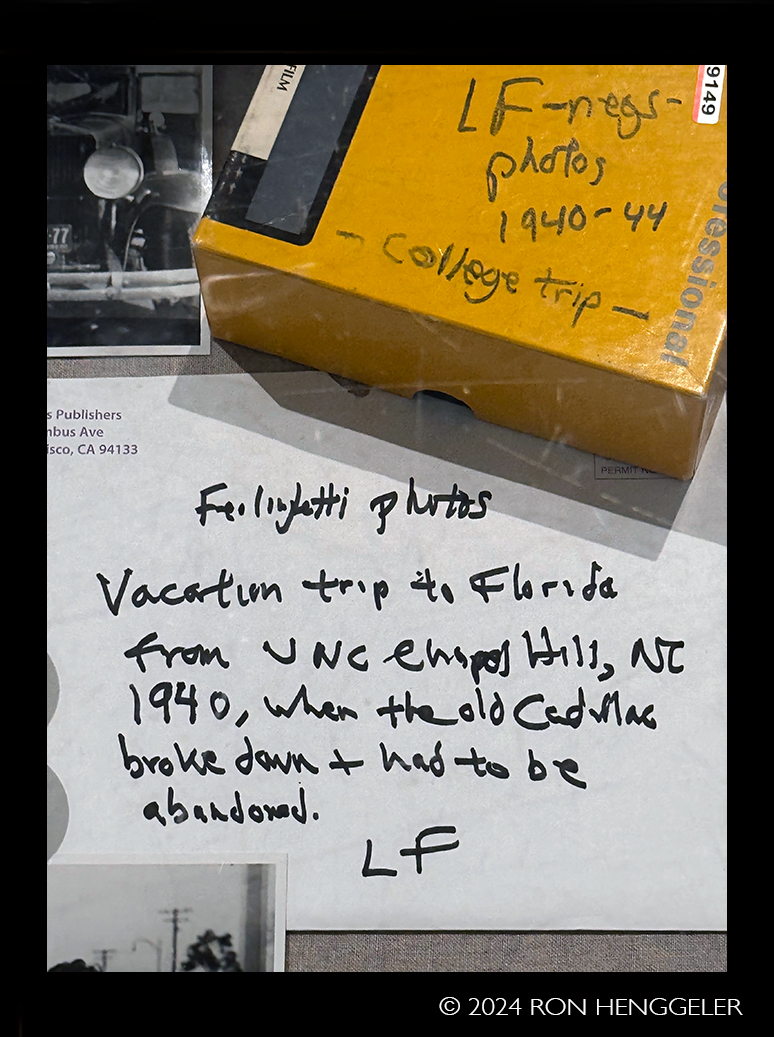 FILM
9149
LF - negs -
photos
1940-44
- College trip -
essional
-77
s Publishers
nbus Ave
isco, CA 94133
PERMIT NO
Ferlinghetti photos
Vacation trip to Florida
from UNC Chapel Hill, NC
1940, when the old Cadillac
broke down + had to be
abandoned.
LF
© 2024 RON HENGGELER